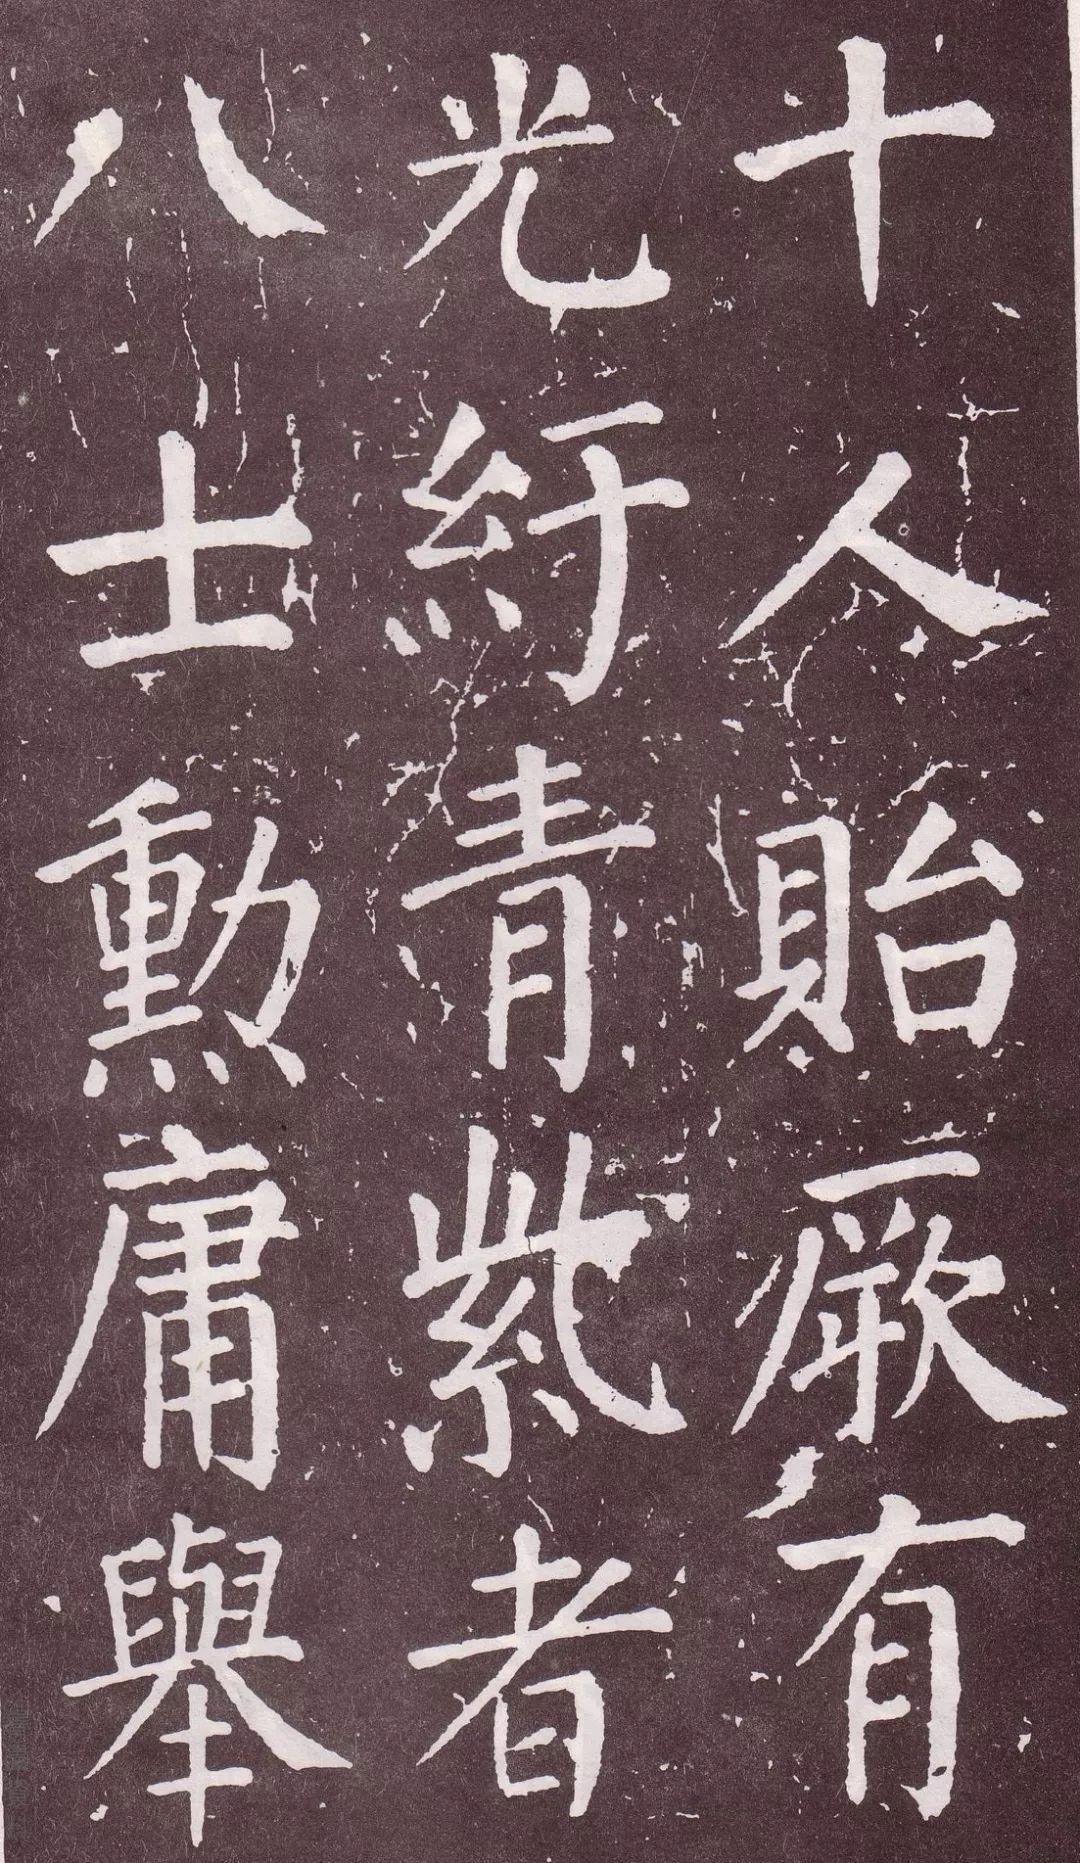 十人貽厥有
光紆青紫者
八士勳庸舉